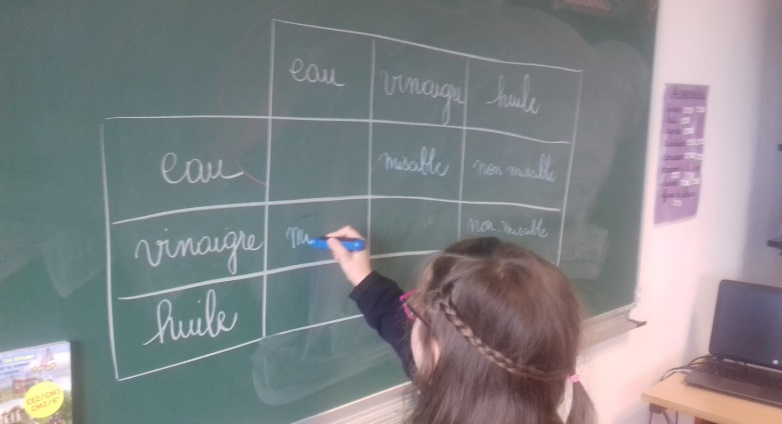 eau vinaigre huile
eau misable non misable
vinaigre mi non misable
huile
CE2/CM1
CM2/6e